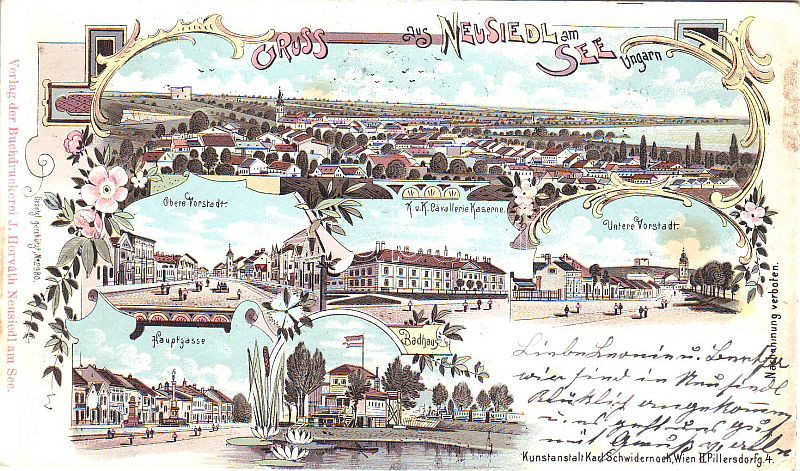 GRUSS aus NEUSIEDL am SEE
Ungarn
Obere Vorstadt.
K.u.K. Cavallerie Kaserne.
Untere Vorstadt.
Hauptgasse
Badhaus
Verlag der Buchdruckerei J. Horváth Neusiedl am See.
Gesetzl. geschützt. No 2980.
Nachahmung verboten.
Liebe Leonie u.
wir sind in Neusiedl
Glücklich angekommen
u. es geht uns gut
mit Gruß
Kunstanstalt Karl Schwidernoch, Wien II. Pillersdorfg. 4.